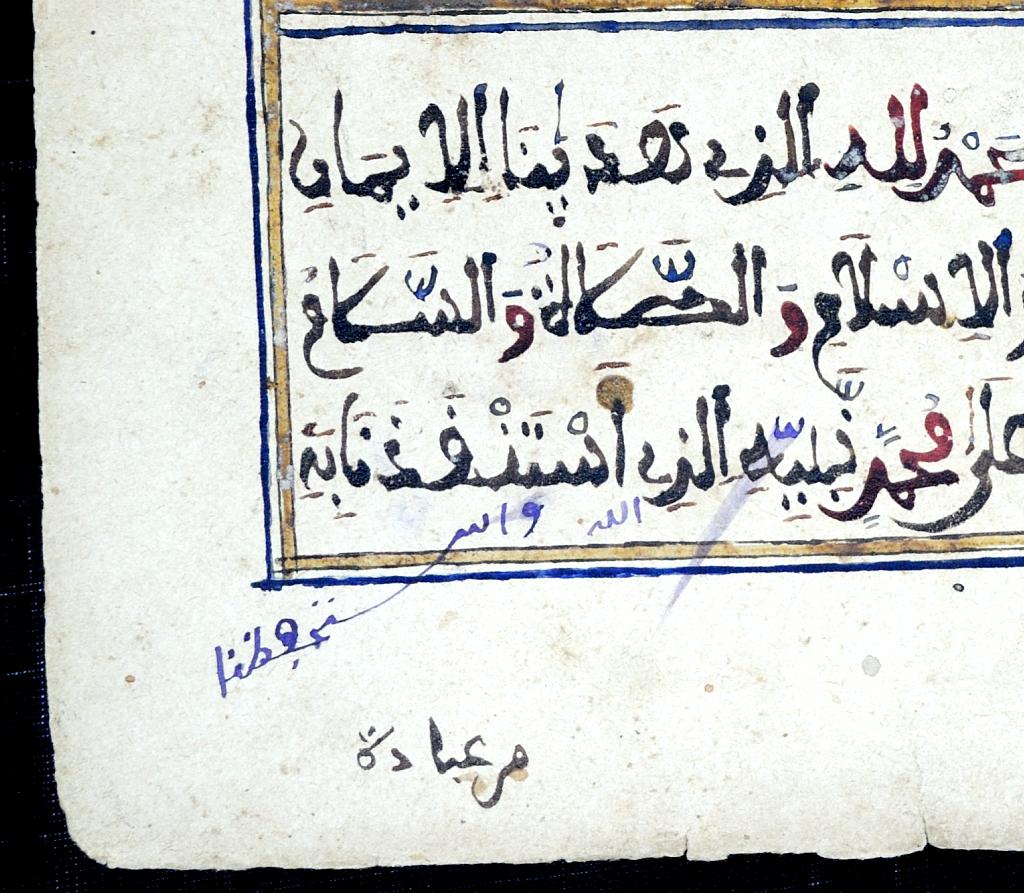 حمد لله الذي هدينا للايمان
الاسلام و الصلاة و السلام
على محمد نبيه الذي استنقذنا به
الله واس
ستحفظنا
من عبادة